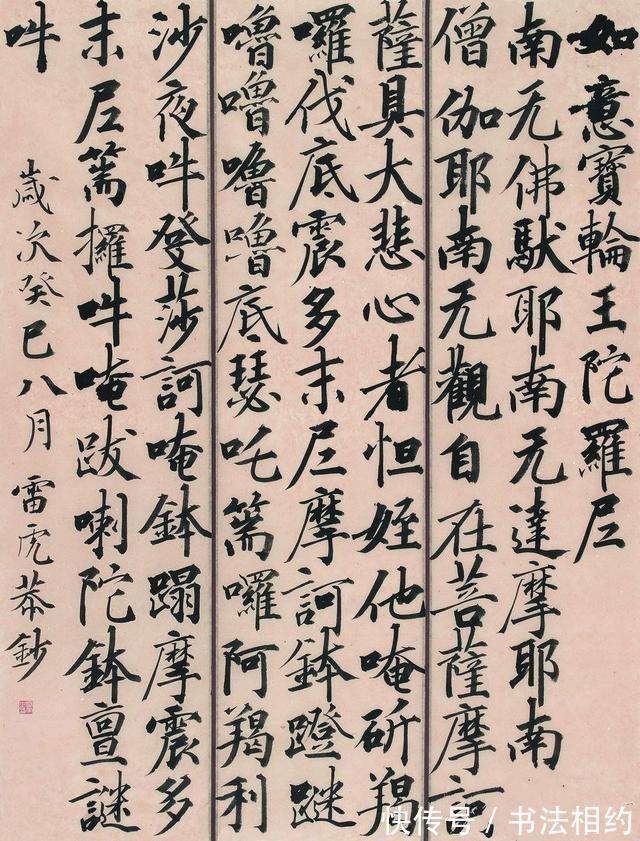 如意寶輪王陀羅尼
南无佛馱耶南无達摩耶南
僧伽耶南无觀自在菩薩摩訶
薩具大悲心者怛姪他唵斫羯
囉伐底震多末尼摩訶鉢蹬
嚕嚕嚕嚕底瑟吒篅囉阿羯利
沙夜吽癹莎訶唵鉢蹋摩震多
末尼篅攞吽唵跋喇陀鉢亶謎
吽
歲次癸巳八月雷虎恭鈔
快传号 / 书法相约